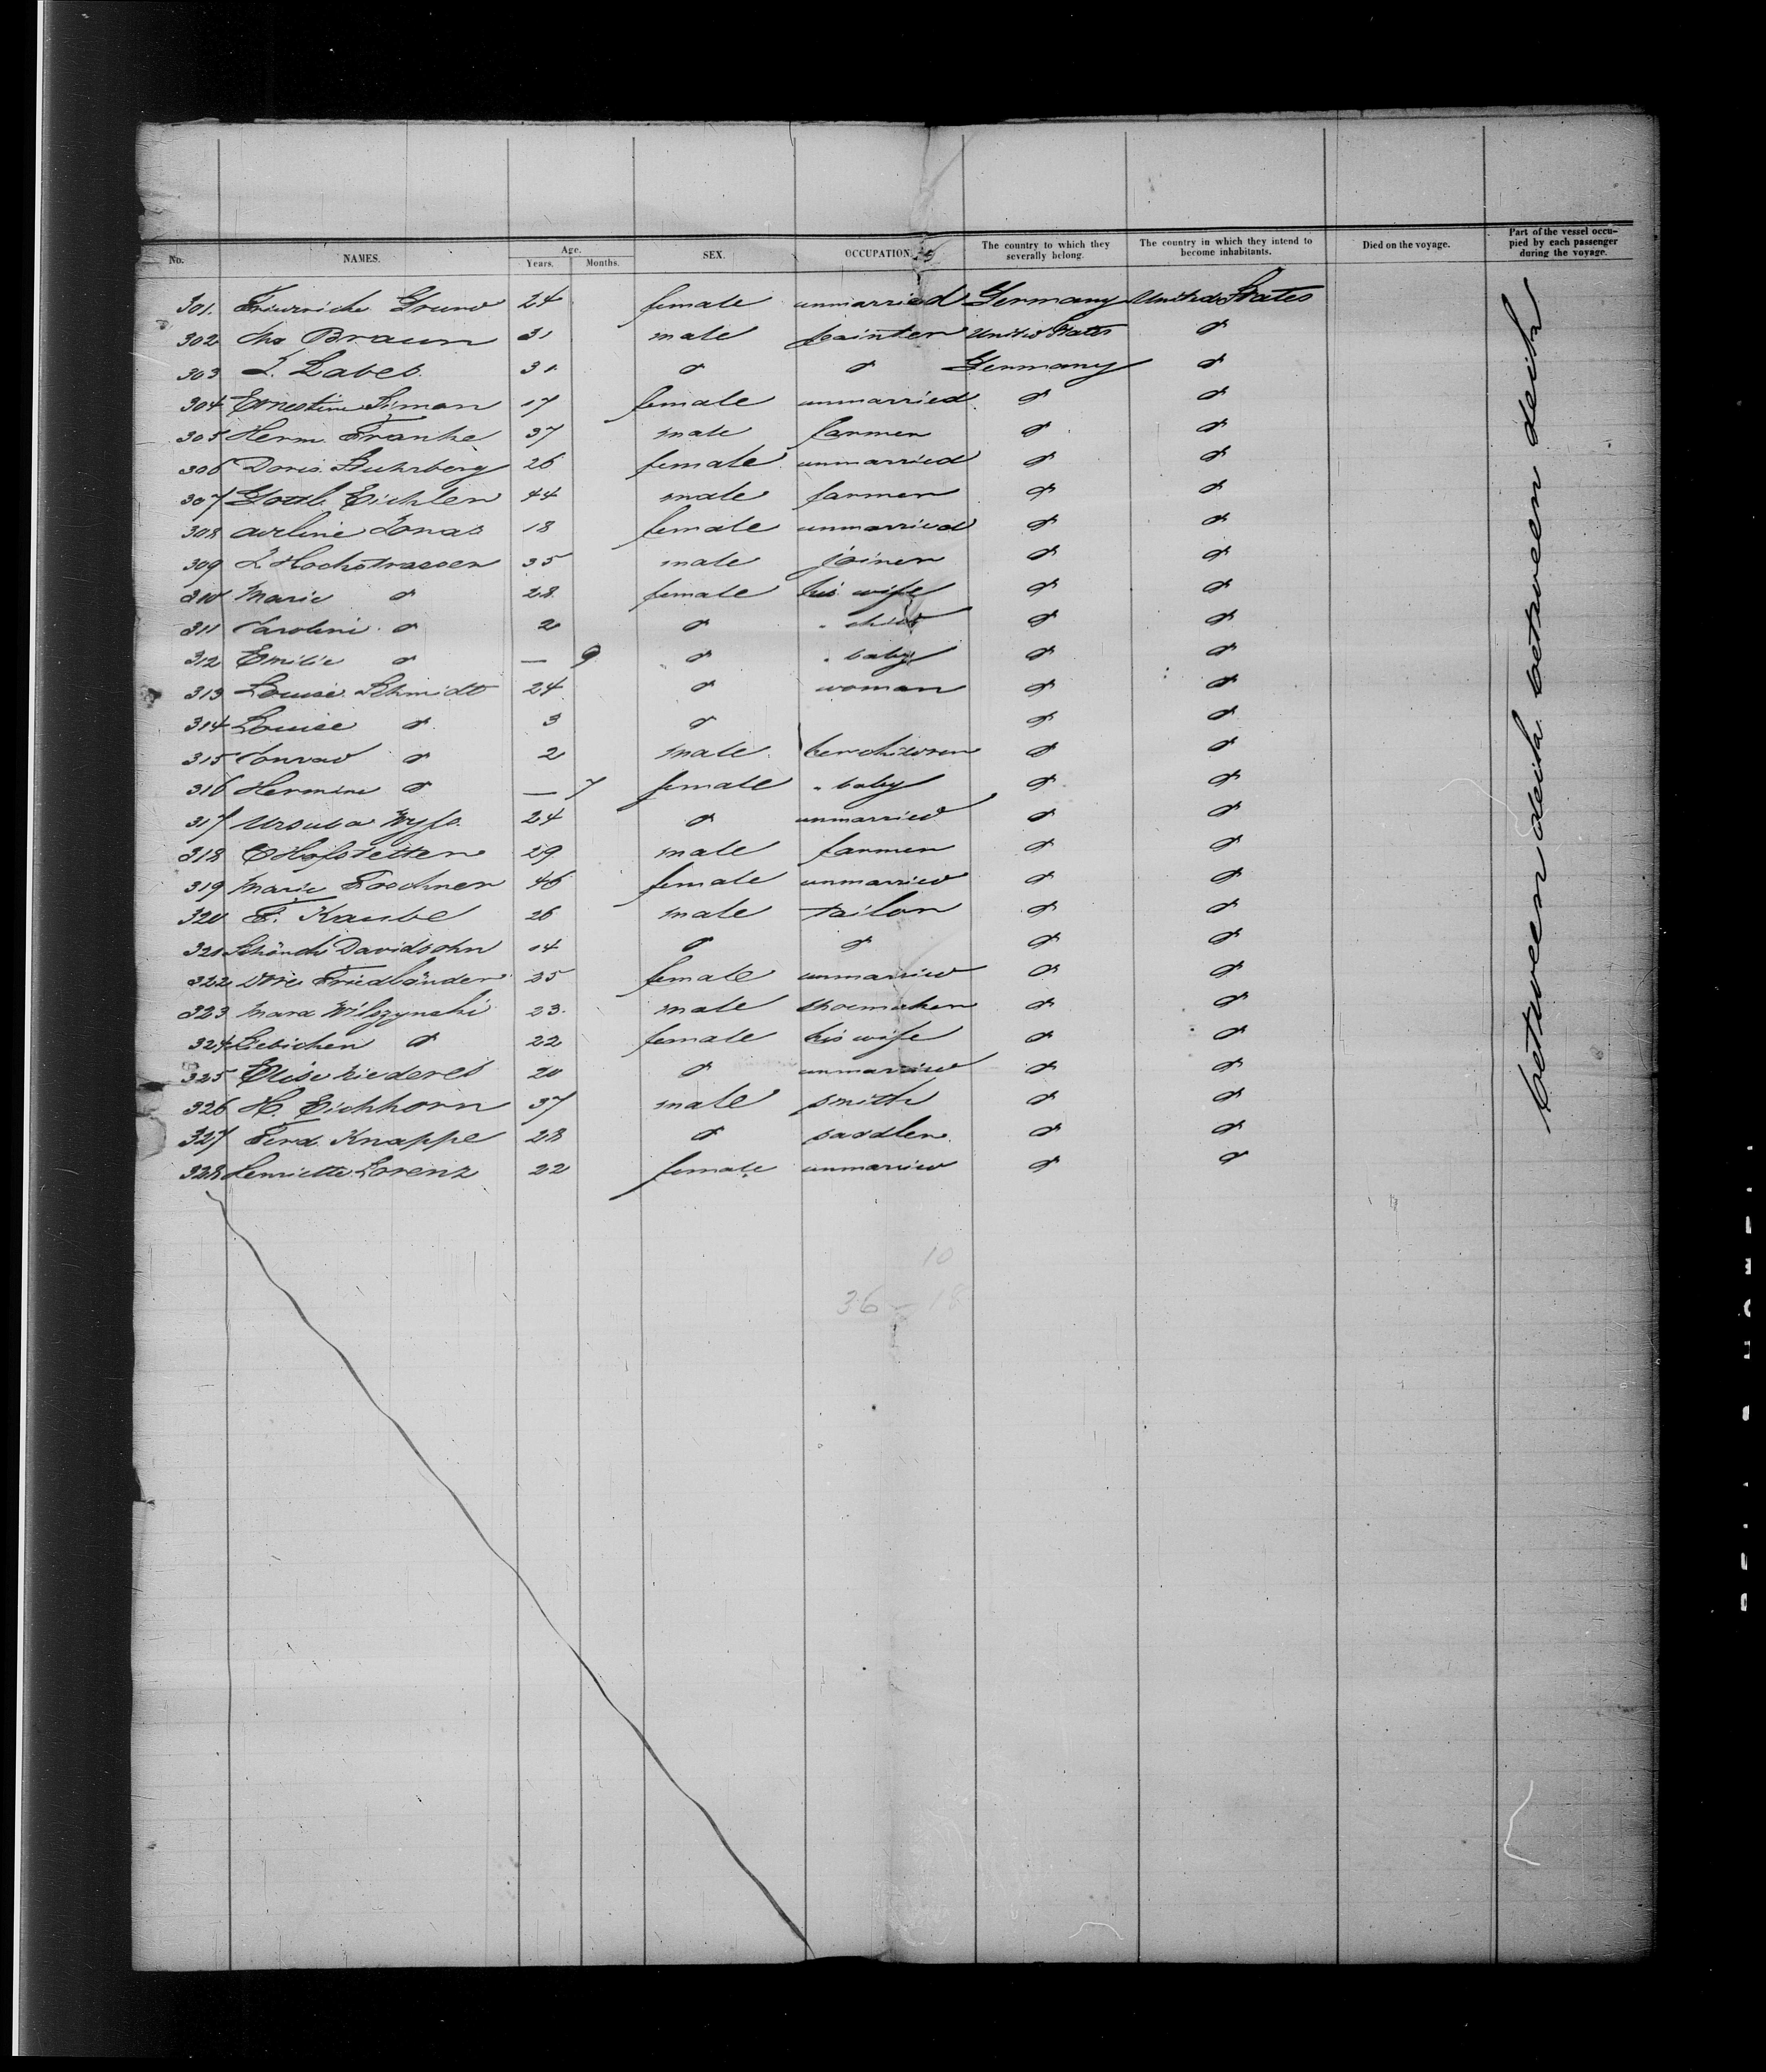 No. NAMES. Age. Years. Months. SEX. OCCUPATION. The country to which they severally belong. The country in which they intend to become inhabitants. Died on the voyage. Part of the vessel occupied by each passenger during the voyage.
301. Friedericke Grund 24 female unmarried Germany United States
302 Chs Braun 31 male painter United States do
303 L. Labes 31 do do Germany do
304 Ernestine Simon 17 female unmarried do do
305 Herm. Franke 37 male farmer do do
306 Doris Buhrberg 26 female unmarried do do
307 Gottl. Eichler 44 male farmer do do
308 Adeline Jonas 18 female unmarried do do
309 L Hochstrasser 35 male joiner do do
310 Marie do 28 female his wife do do
311 Caroline do 2 do " child do do
312 Emilie do — 9 do " baby do do
313 Louise Schmidt 24 do woman do do
314 Louise do 3 do do do
315 Conrad do 2 male her children do do
316 Hermine do — 7 female " baby do do
317 Ursula Wyss 24 do unmarried do do
318 C Hofstetter 29 male farmer do do
319 Marie Foschner 46 female unmarried do do
320 F. Kaubel 26 male tailor do do
321 Davidsohn 14 do do do do
322 Dore Friedländer 25 female unmarried do do
323 Marx Wilszynski 23 male shoemaker do do
324 do 22 female his wife do do
325 Elise Niederel 20 do unmarried do do
326 H. Eichhorn 37 male smith do do
327 Ferd. Knappe 28 do saddler do do
328 Henriette Lorenz 22 female unmarried do do
between decks between decks
10
36 — 18